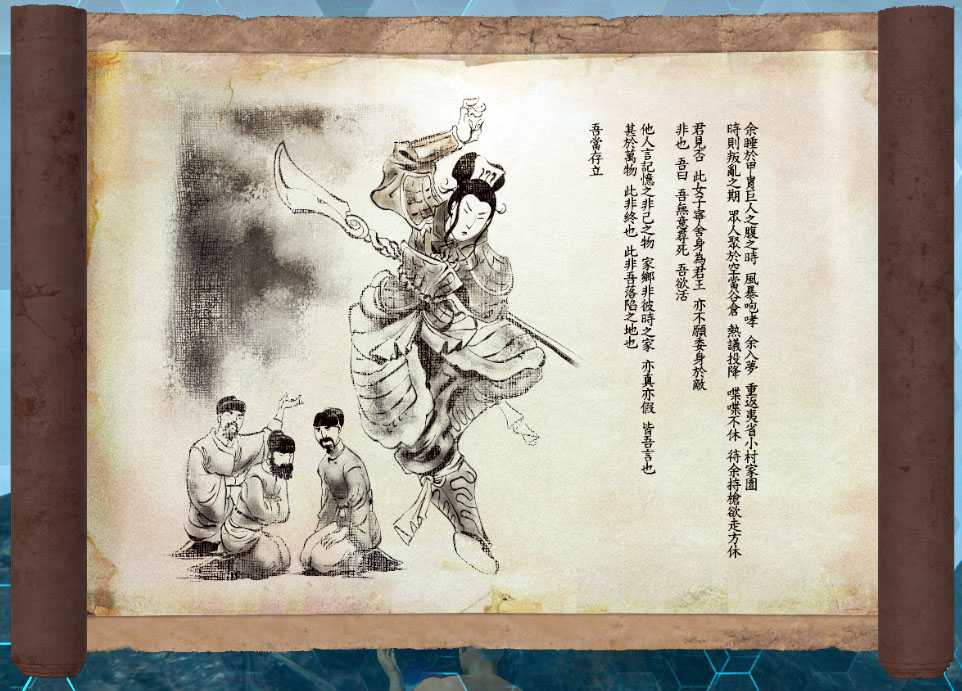 余睡於甲冑巨人之腹之時 風暴咆哮 余入夢 重返夷省小村家園
時則叛亂之期 眾人聚於空蕩谷倉 熱議投降 喋喋不休 待余持槍欲走方休
君見否 此女子寧舍身為君王 亦不願委身於敵
非也 吾曰 吾無意尋死 吾欲活
他人言記憶之非己之物 家鄉非彼時之家 亦真亦假 皆吾言也
甚於萬物 此非終也 此非吾落陷之地也
吾當存立